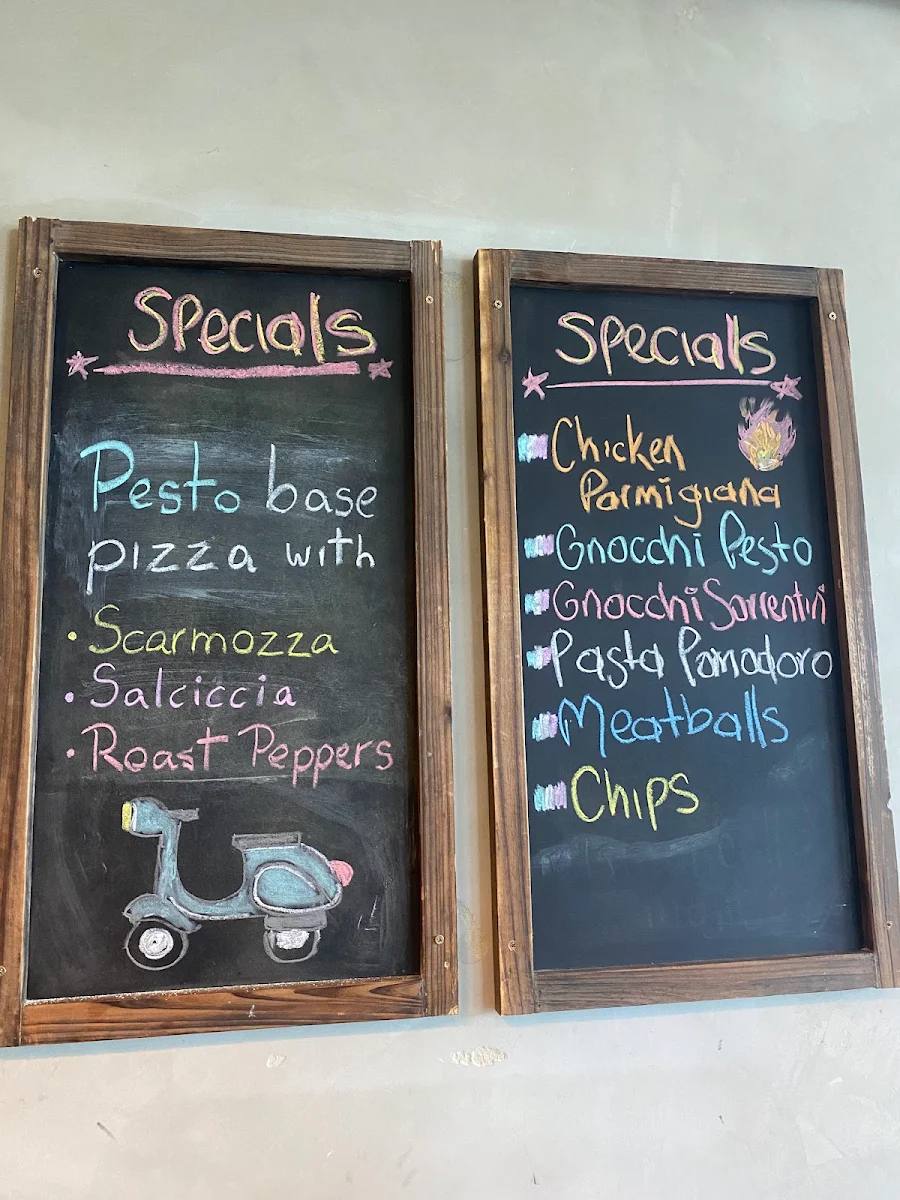 Specials
Pesto base
pizza with
• Scarmozza
• Salciccia
• Roast Peppers
Specials
Chicken
Parmigiana
Gnocchi Pesto
Gnocchi Sorrentini
Pasta Pomadoro
Meatballs
Chips